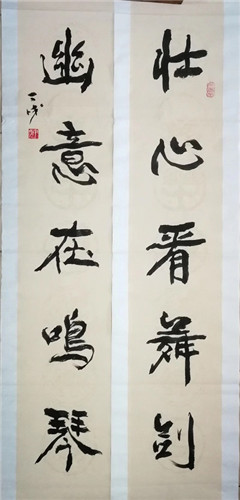 壮心看舞剑
幽意在鸣琴